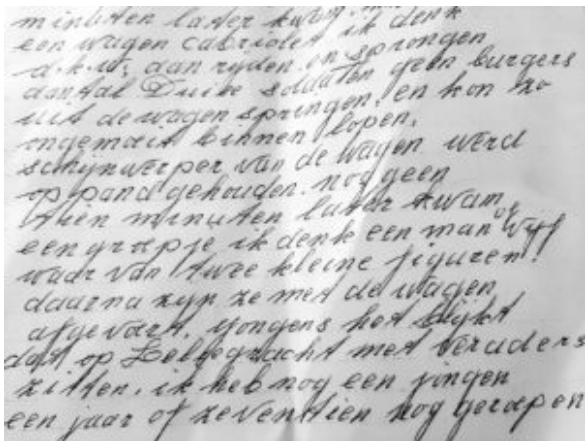 minuten later kwam
een wagen cabriolet ik denk
d.k.w. aan ryden en sprongen
aantal Duitse soldaten geen burgers
uit de wagen springen, en kon zo
ongemoeit binnen lopen.
schijnwerper van de wagen werd
op pand gehouden. nog geen
tien minuten later kwam
een groepje ik denk een man of vyf
waar van twee kleine figuren!
daarna zyn ze met de wagen
afgevoert. yongens het blijkt
dat op Leliegracht met veraders
zitten. ik heb nog een jongen
een jaar of zeventien nog geroepen